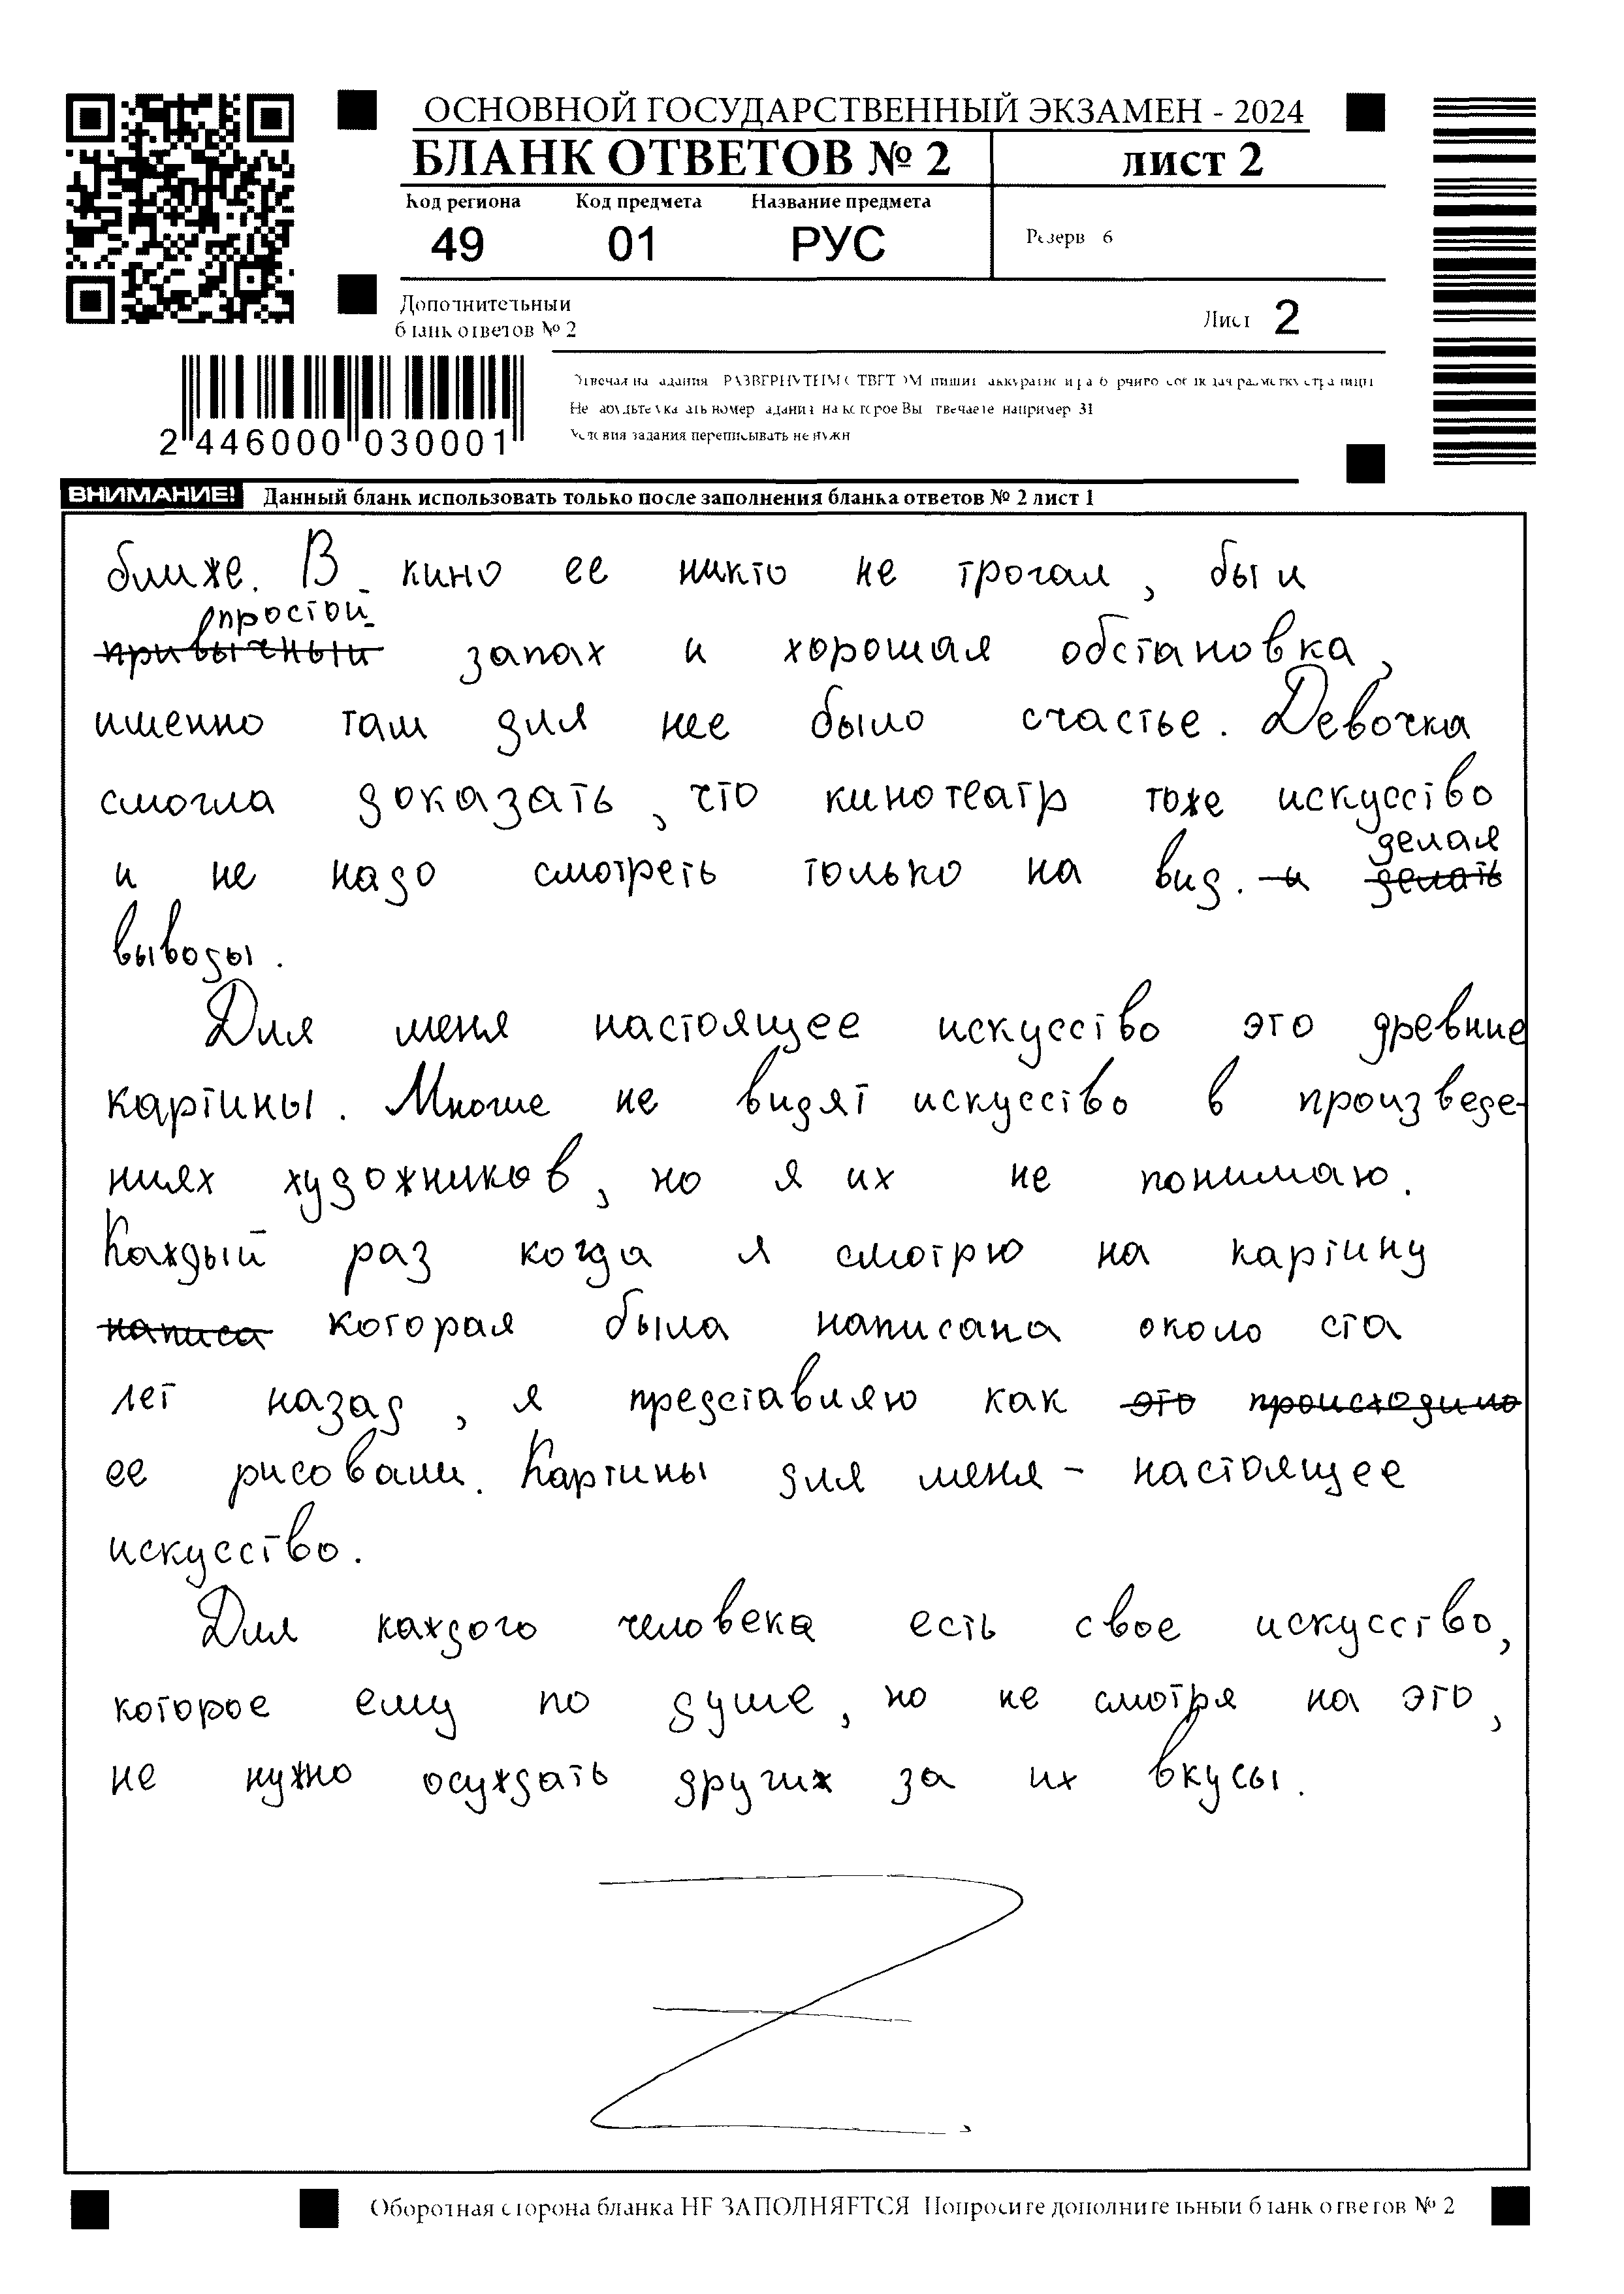 ОСНОВНОЙ ГОСУДАРСТВЕННЫЙ ЭКЗАМЕН - 2024
БЛАНК ОТВЕТОВ № 2 лист 2
Код региона Код предмета Название предмета
49 01 РУС
Резерв 6
Дополнительный
бланк ответов № 2
Лист 2
Не забудьте указать номер задания на которое Вы отвечаете например 31
Условия задания переписывать не нужно
2 446000 030001
ВНИМАНИЕ! Данный бланк использовать только после заполнения бланка ответов № 2 лист 1
ближе. В кино ее никто не трогал, бы и
простой
привычный запах и хорошая обстановка,
именно там для нее было счастье. Девочка
смогла доказать, что кинотеатр тоже искусство
делая
и не надо смотреть только на вид. и делать
выводы.
Для меня настоящее искусство это древние
картины. Многие не видят искусство в произведе-
ниях художников, но я их не понимаю.
Каждый раз когда я смотрю на картину
написа которая была написана около ста
лет назад, я представляю как это происходило
ее рисовали. Картины для меня - настоящее
искусство.
Для каждого человека есть свое искусство,
которое ему по душе, но не смотря на это,
не нужно осуждать других за их вкусы.
Оборотная сторона бланка НЕ ЗАПОЛНЯЕТСЯ Попросите дополнительный бланк ответов № 2